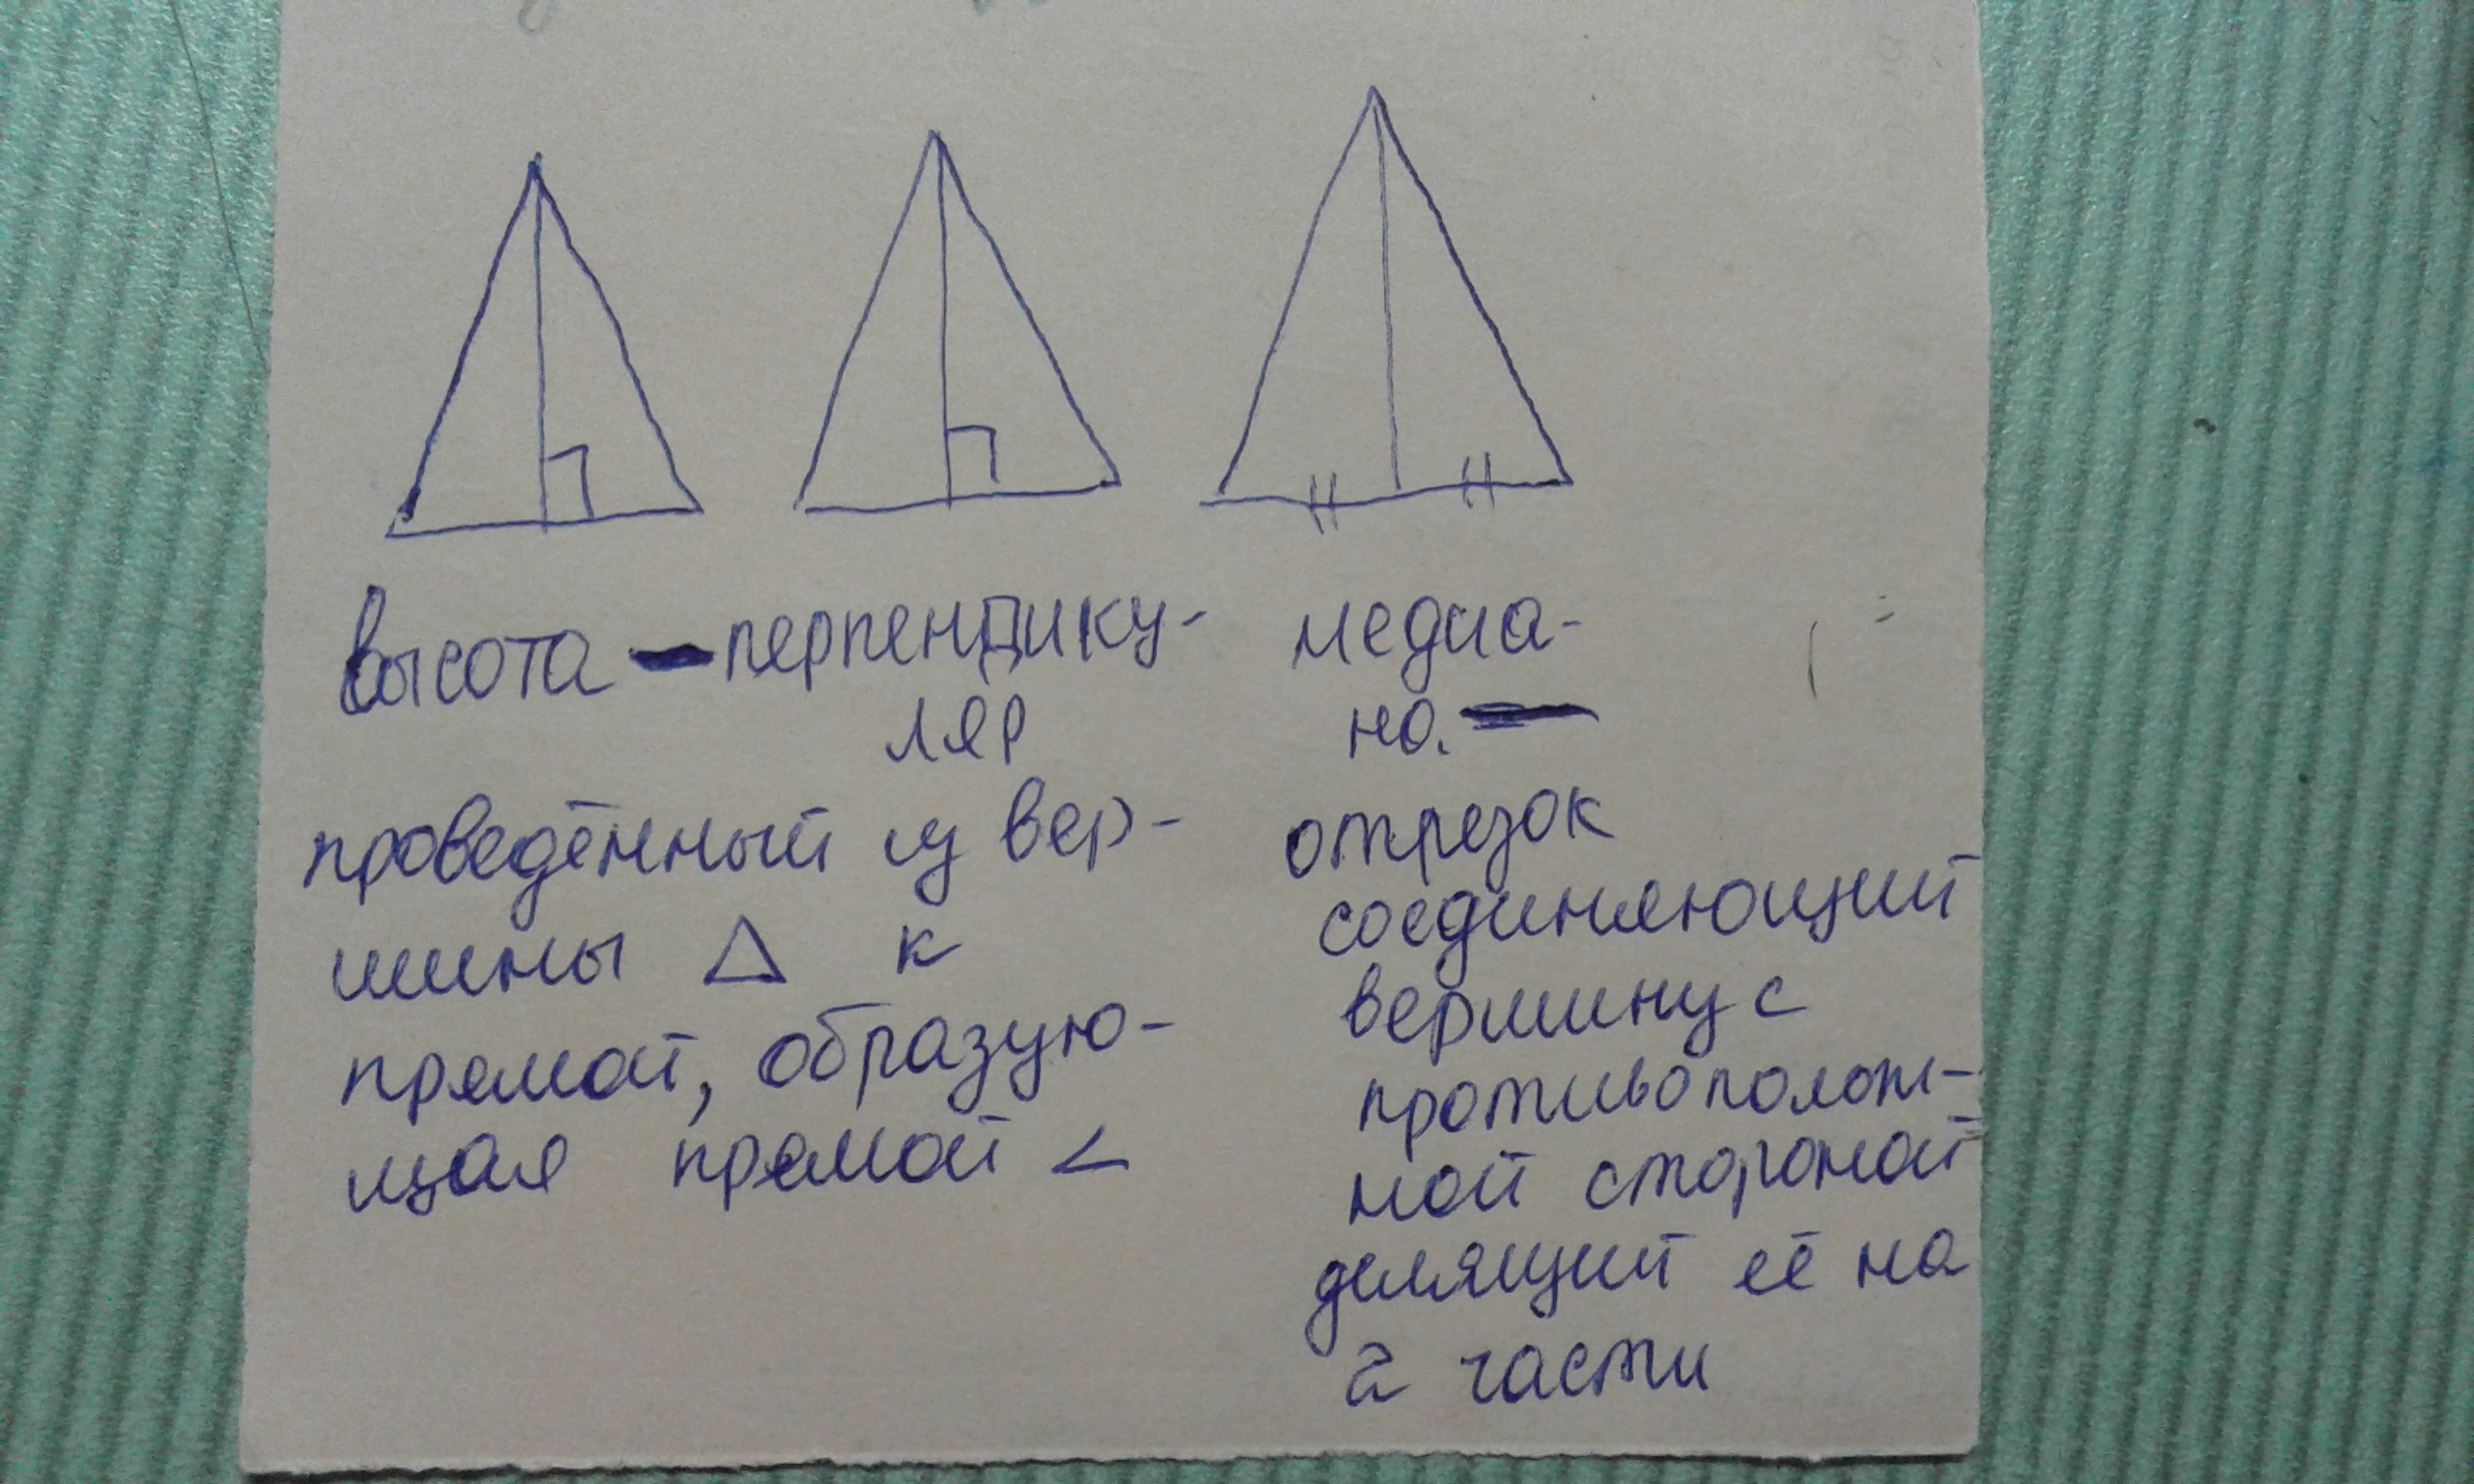 высота — перпендику-
ляр
проведённый из вер-
шины △ к
прямой, образую-
щая прямой <
медиа-
на. —
отрезок
соединяющий
вершину с
противополож-
ной стороной
делящий её на
2 части